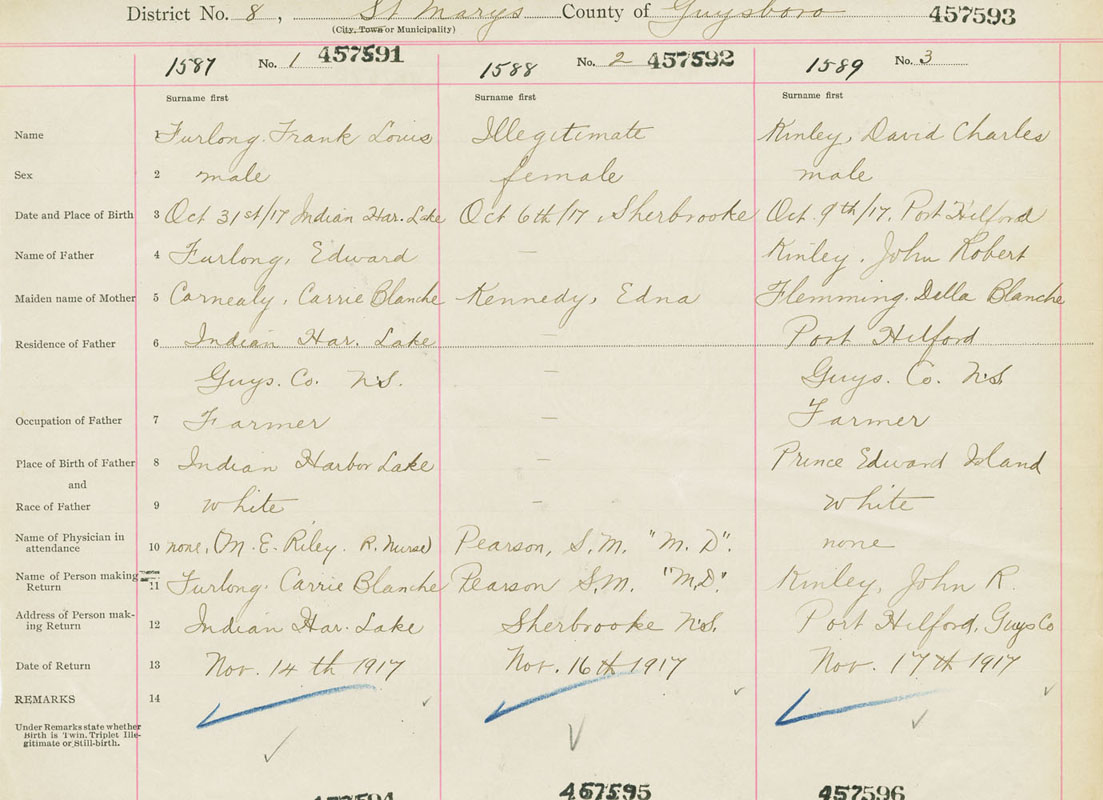 District No. 8, St Marys County of Guysboro 457593
(City, Town or Municipality)
1587 No. 1 457591 1588 No. 2 457592 1589 No. 3
Surname first Surname first Surname first
Name 1 Furlong. Frank Louis Illegitimate Kinley, David Charles
Sex 2 male female male
Date and Place of Birth 3 Oct 31st/17 Indian Har. Lake Oct 6th/17, Sherbrooke Oct. 9th/17, Port Hilford
Name of Father 4 Furlong, Edward — Kinley, John Robert
Maiden name of Mother 5 Carnealy, Carrie Blanche Kennedy, Edna Flemming. Della Blanche
Residence of Father 6 Indian Har. Lake — Port Hilford
Guys. Co. N.S. — Guys. Co. N.S
Occupation of Father 7 Farmer — Farmer
Place of Birth of Father 8 Indian Harbor Lake — Prince Edward Island
and
Race of Father 9 white — white
Name of Physician in
attendance 10 none, (M. E. Riley. R. Nurse) Pearson, S.M. "M. D". none
Name of Person making
Return 11 Furlong. Carrie Blanche Pearson S.M. "M.D". Kinley, John R.
Address of Person mak-
ing Return 12 Indian Har. Lake Sherbrooke N.S. Port Hilford, Guys Co
Date of Return 13 Nov. 14th 1917 Nov. 16th 1917 Nov. 17th 1917
REMARKS 14
Under Remarks state whether
Birth is Twin, Triplet Ille-
gitimate or Still-birth.
457594 457595 457596